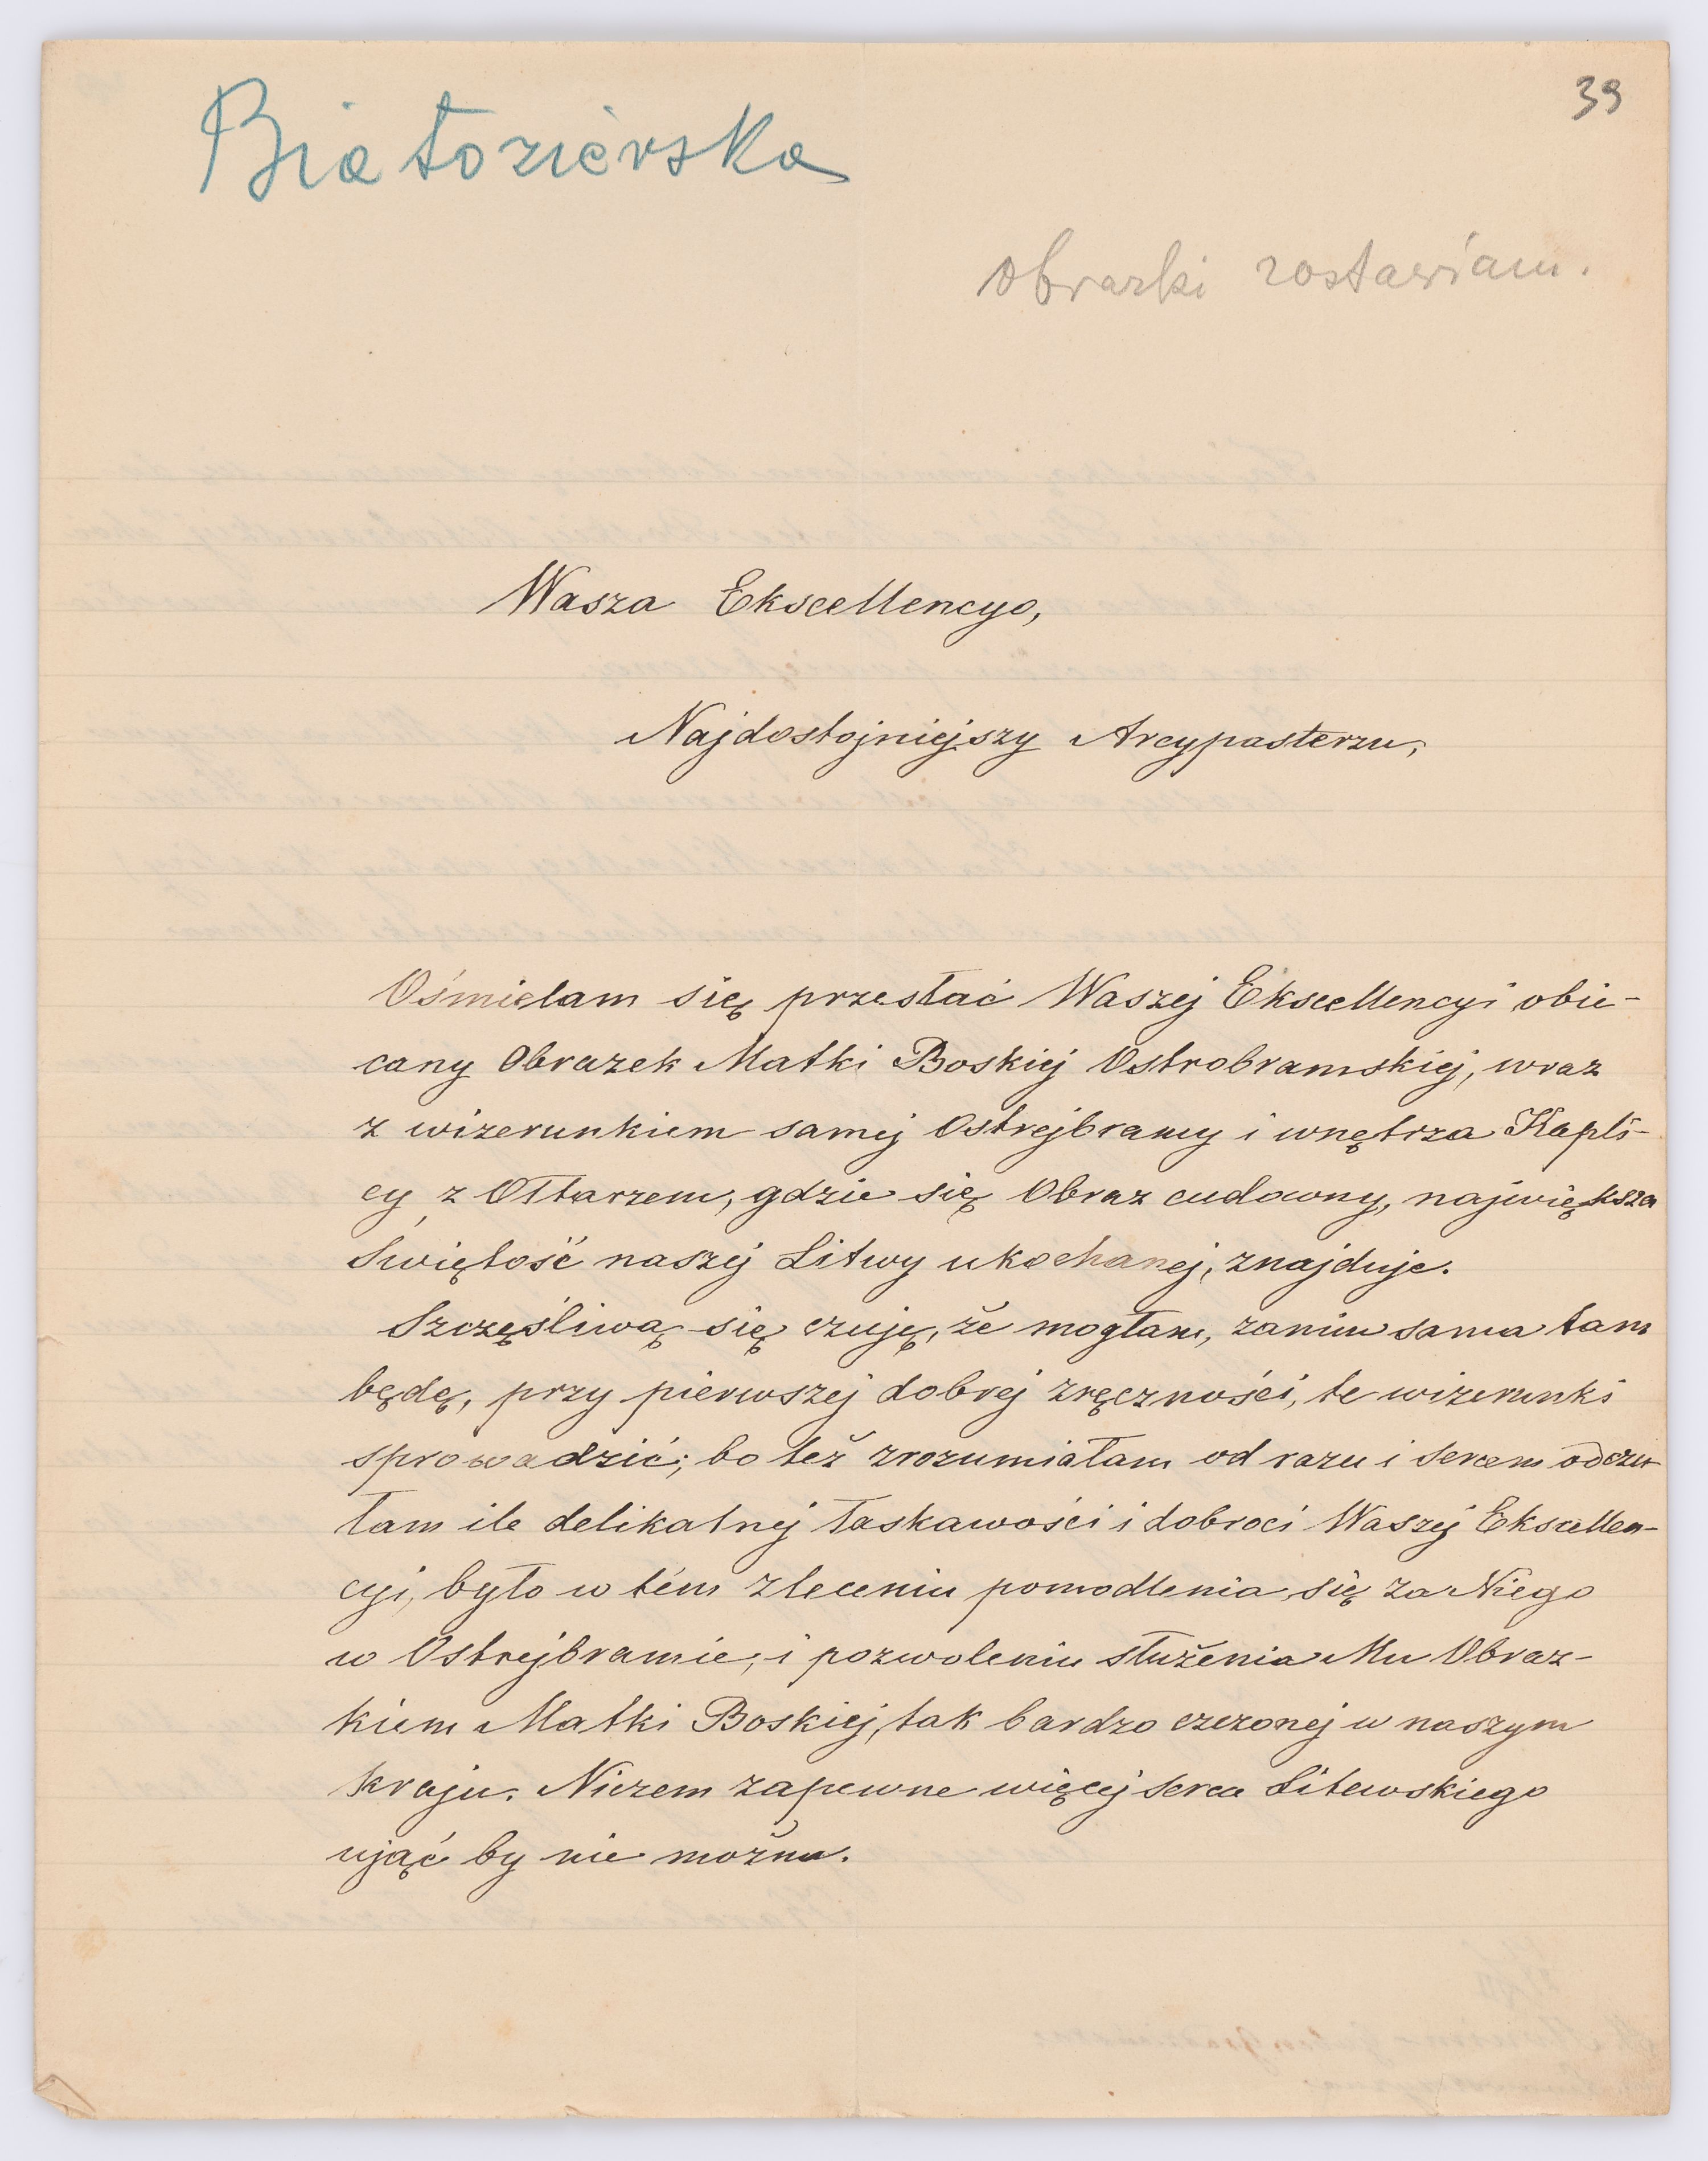 39
Białozierska
Obrazki zostawiam.
Wasza Ekscellencyo,
Najdostojniejszy Arcypasterzu,
Ośmielam się przesłać Waszej Ekscellencyi obie-
cany Obrazek Matki Boskiej Ostrobramskiej, wraz
z wizerunkiem samej Ostrejbramy i wnętrza Kapli-
cy z Ołtarzem, gdzie się Obraz cudowny, największa
Świętość naszej Litwy ukochanej, znajduje.
Szczęśliwą się czuję, że mogłam, zanim sama tam
będę, przy pierwszej dobrej zręczności, te wizerunki
sprowadzić; bo też zrozumiałam od razu i sercem odczu-
łam ile delikatnej łaskawości i dobroci Waszej Ekscellen-
cyi, było w tém zleceniu pomodlenia się za Niego
w Ostrejbramie, i pozwoleniu służenia Mu Obraz-
kiem Matki Boskiej, tak bardzo czczonej w naszym
kraju. Niczem zapewne więcej serca Litewskiego
ująć by nie można.